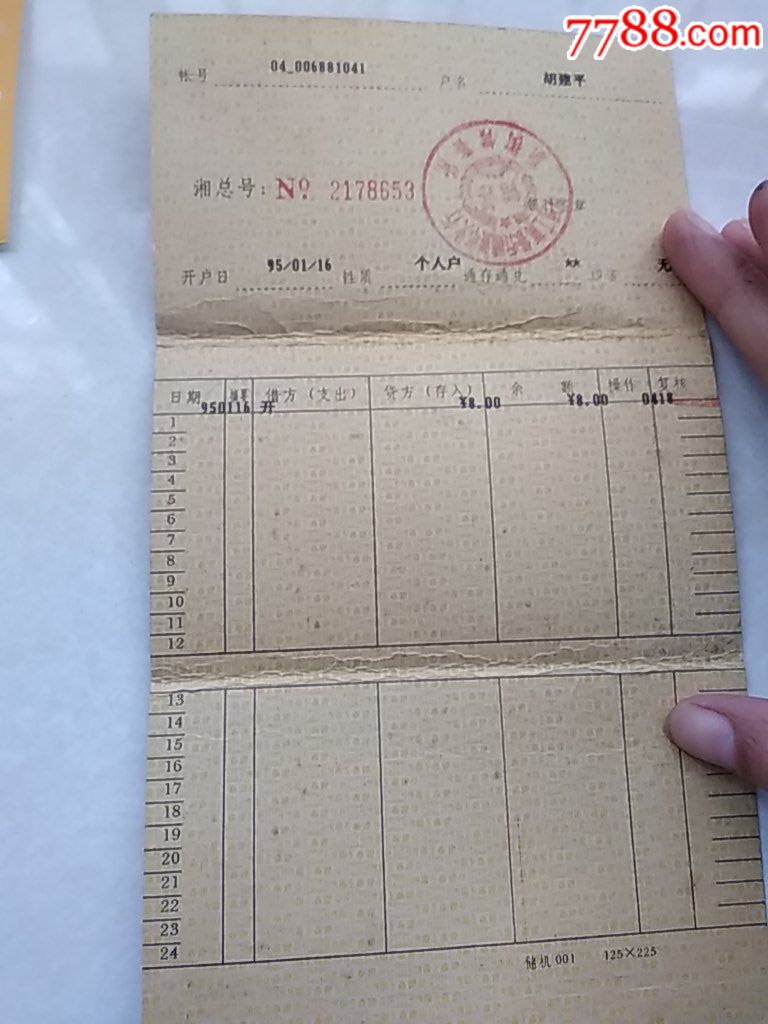 7788.com
帐号 04_006881041 户名 胡建平
湘总号: No 2178653
开户日 95/01/16 性质 个人户 通存通兑 ** 无
日期 摘要 借方(支出) 贷方(存入) 余 额 操作 复核
950116 开 ¥8.00 ¥8.00 0418
1
2
3
4
5
6
7
8
9
10
11
12
13
14
15
16
17
18
19
20
21
22
23
24
储机001 125×225